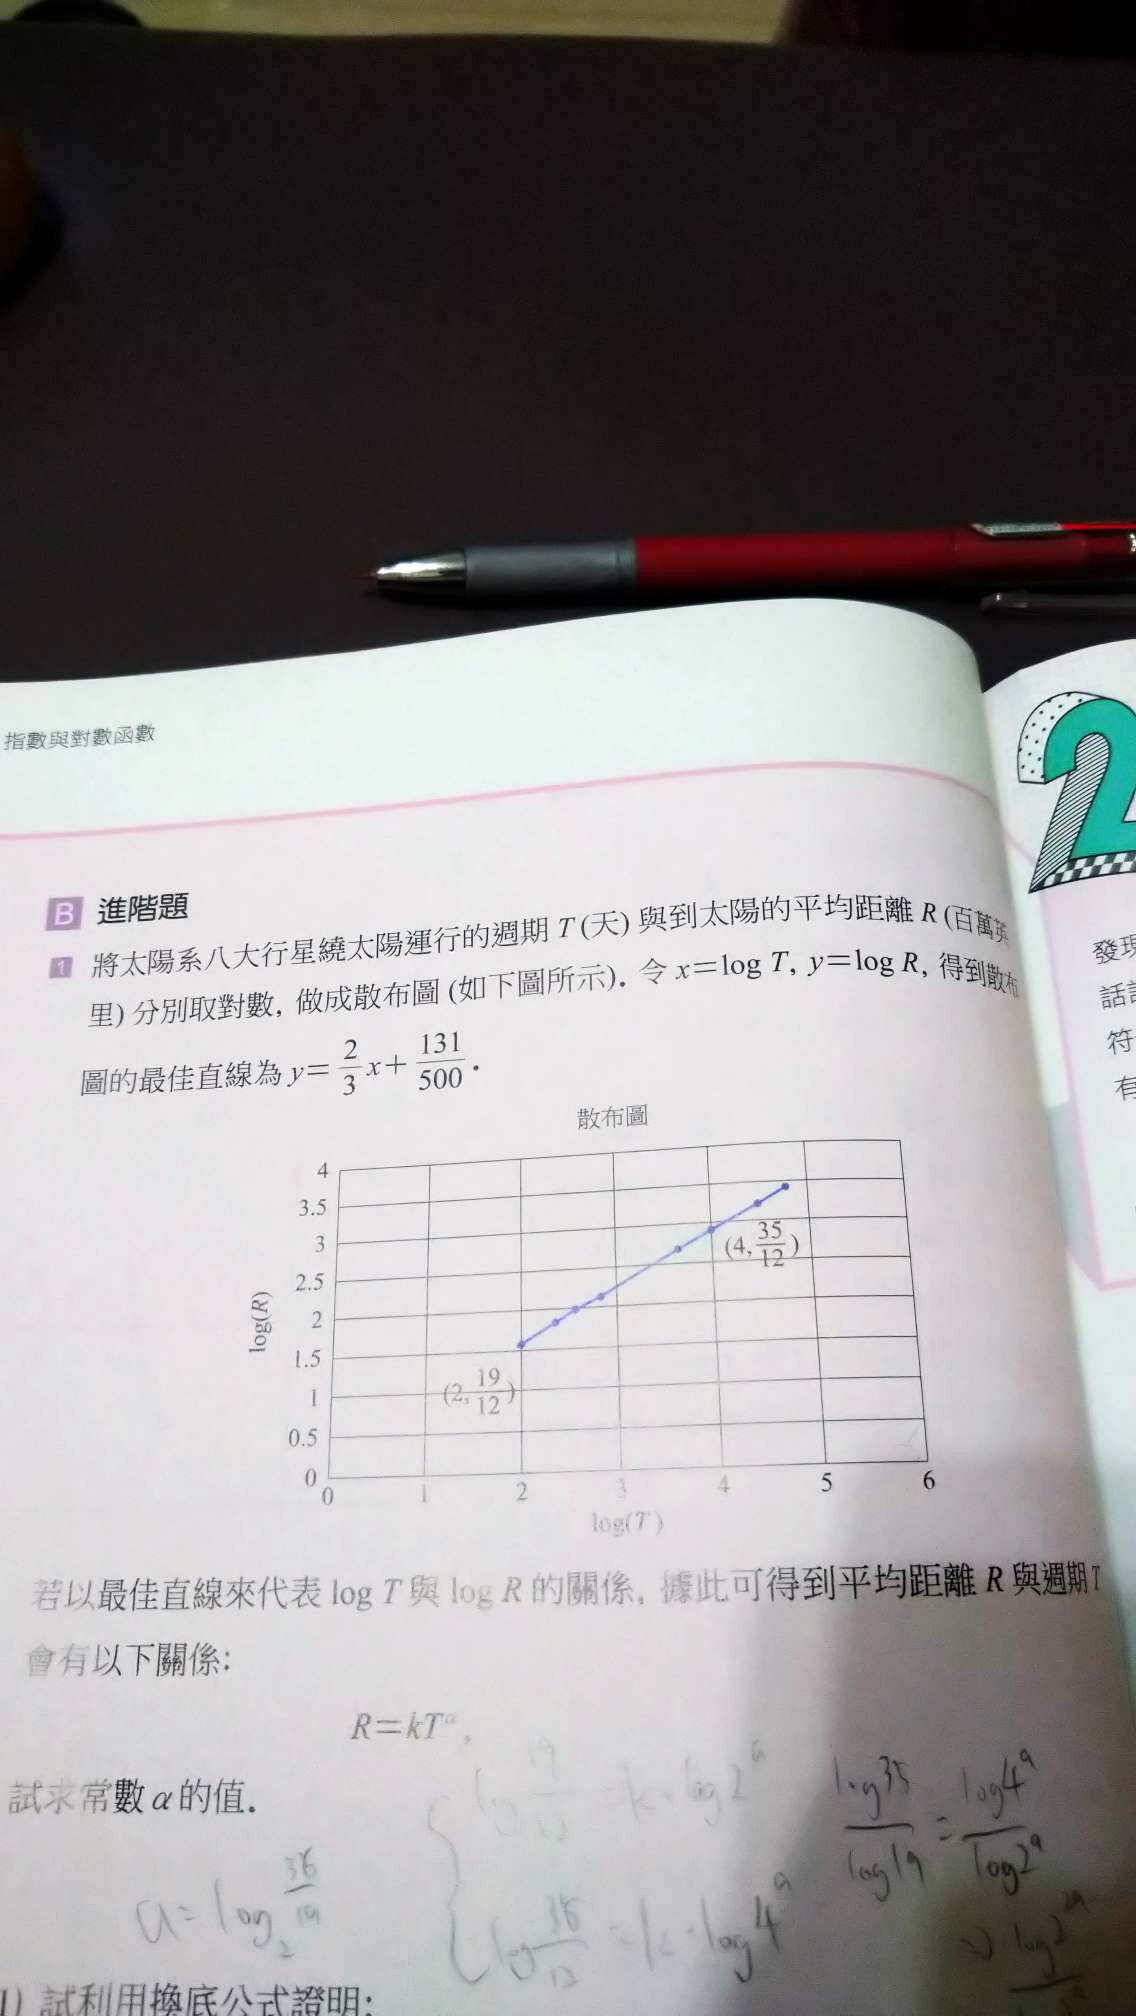 指數與對數函數
B 進階題
1 將太陽系八大行星繞太陽運行的週期 T (天) 與到太陽的平均距離 R (百萬英
里) 分別取對數, 做成散布圖 (如下圖所示). 令 x=log T, y=log R, 得到散布
圖的最佳直線為 y= 2/3 x+ 131/500 .
散布圖
4
3.5
3
2.5
2
1.5
1
0.5
0
log(R)
(4, 35/12)
(2, 19/12)
0 1 2 3 4 5 6
log(T)
若以最佳直線來代表 log T 與 log R 的關係, 據此可得到平均距離 R 與週期 T
會有以下關係:
R=kTᵅ,
試求常數 α 的值.
log 19/12 = k·log2ᵃ
log35/log19 = log4ᵃ/log2ᵃ
a= log₂
= k·log4ᵃ
⇒ log2²ᵃ
1) 試利用換底公式證明:
2
發現
話
符
有